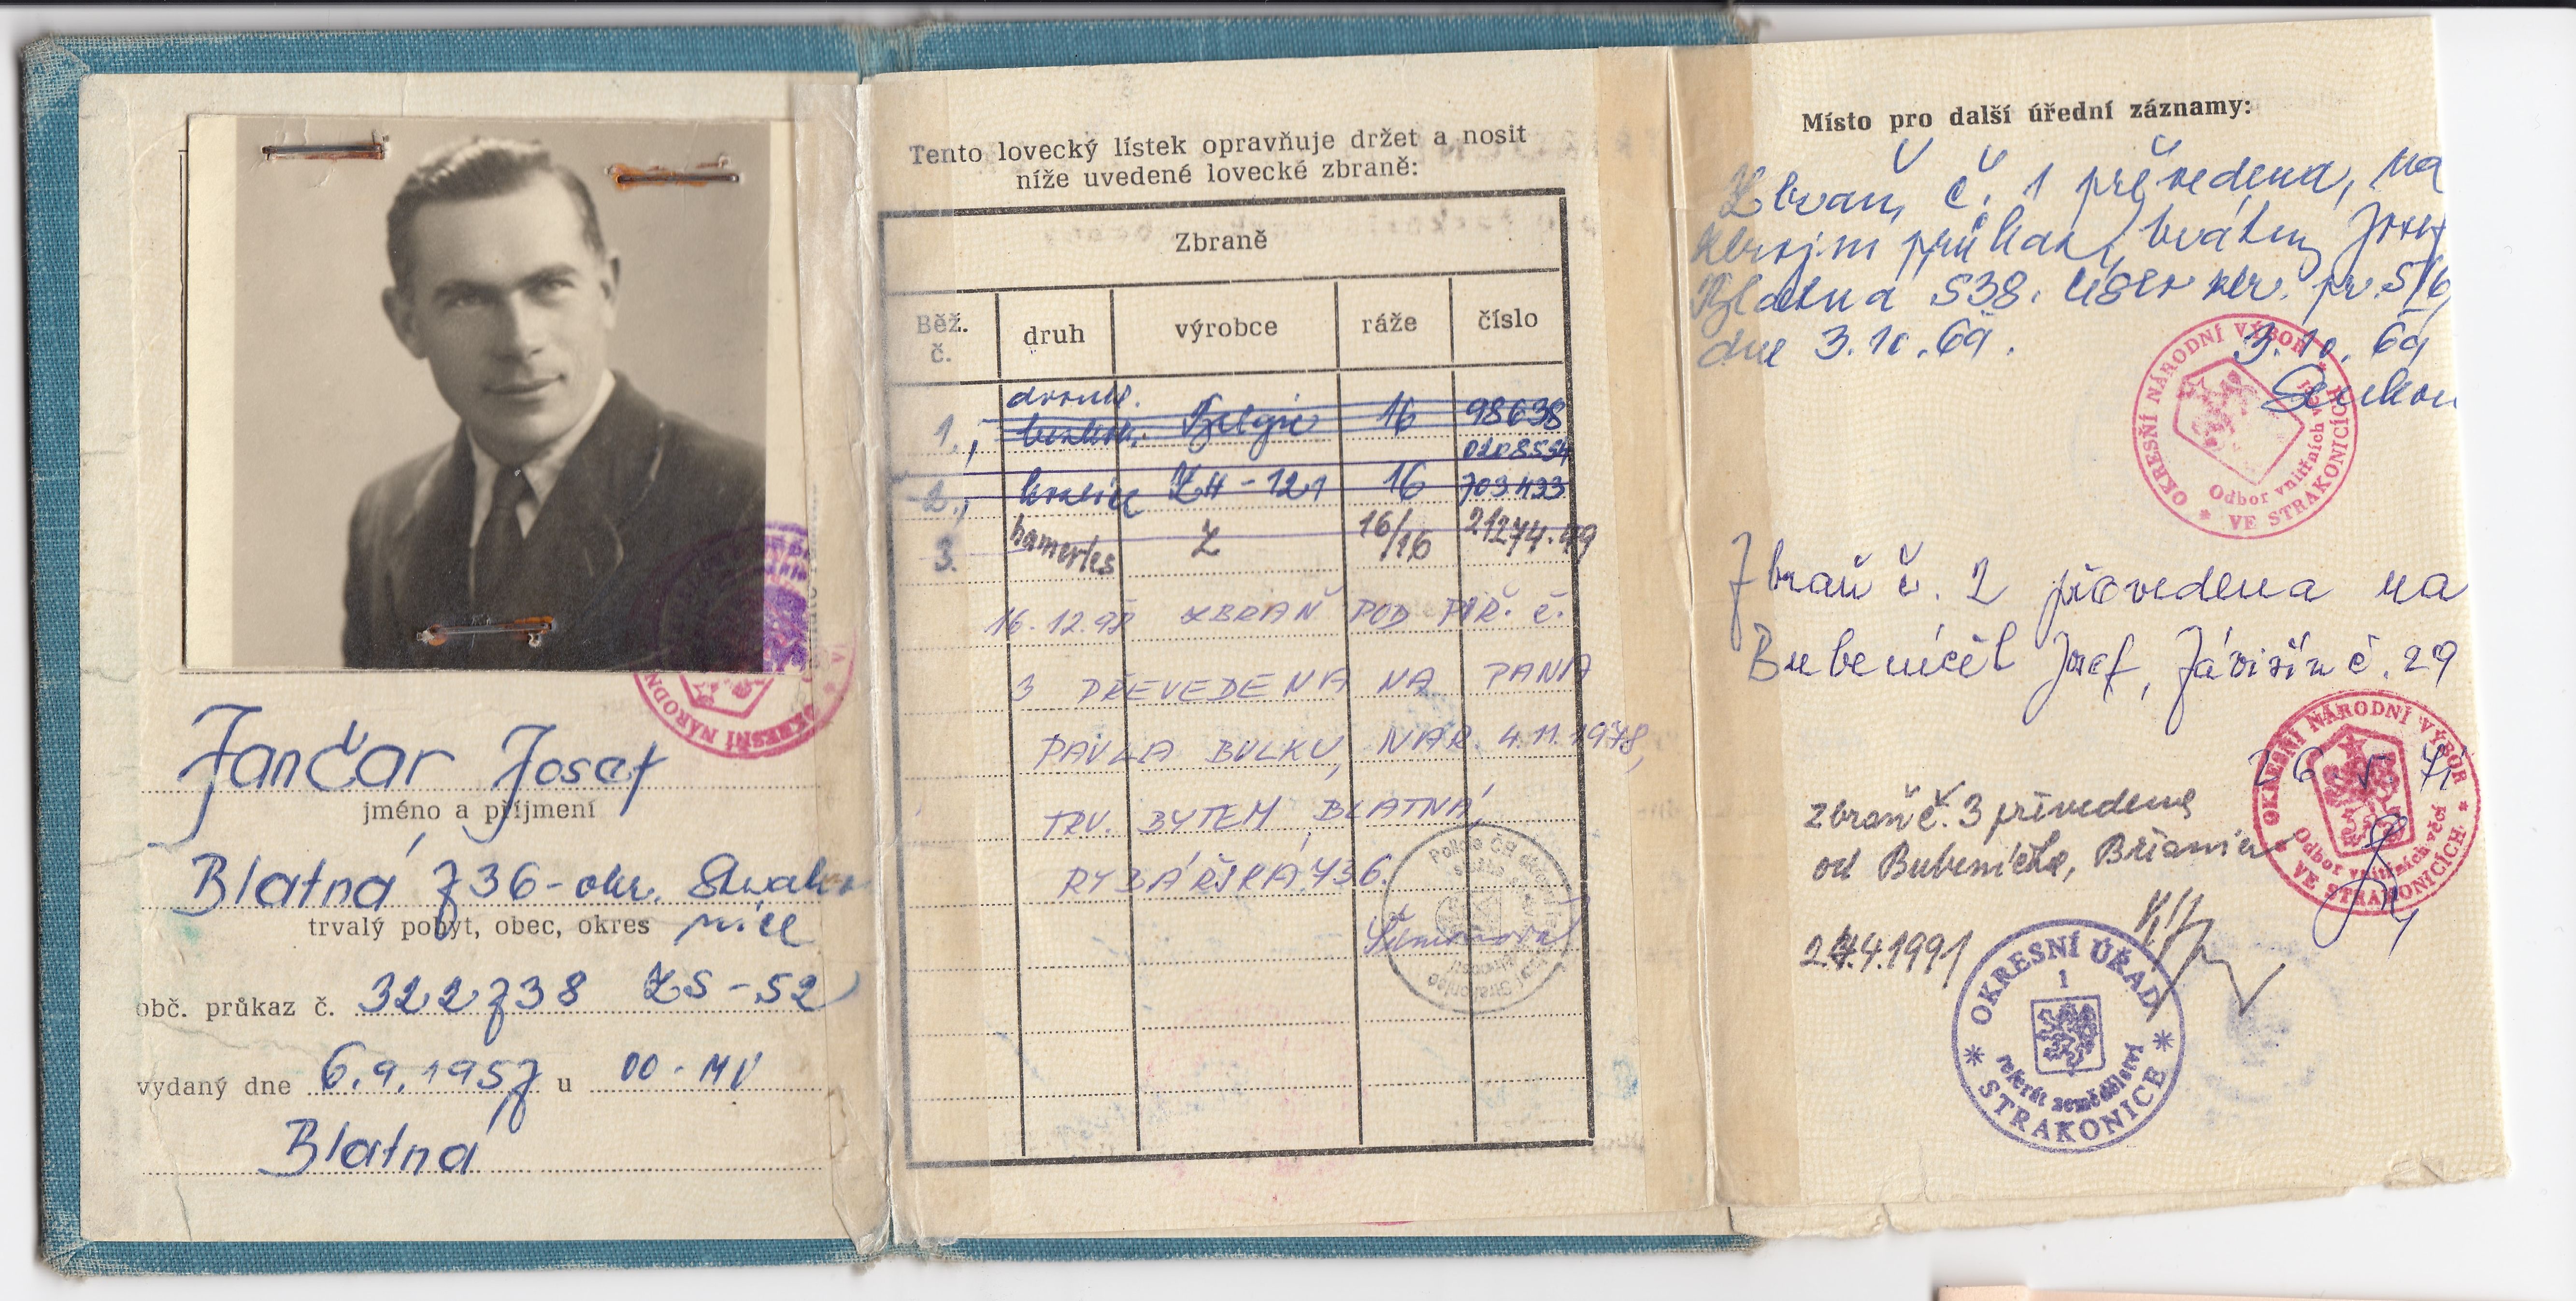 Jančar Josef
jméno a příjmení
Blatná 736 - okr. Strako
trvalý pobyt, obec, okres nice
obč. průkaz č. 322738 ZS-52
vydaný dne 6.9.1957 u OO-MV
Blatná
OKRESNÍ NÁRODNÍ
Tento lovecký lístek opravňuje držet a nosit
níže uvedené lovecké zbraně:
Zbraně
Běž. č. druh výrobce ráže číslo
1., Belgie 16 98638
2., ZH-121 16 703433
3. hamerles Z 16/16 21274.49
ZBRAŇ POD POŘ. č.
3 PŘEVEDENA NA PANA
PAVLA BULKU, NAR. 4.11.1978,
TRV. BYTEM BLATNÁ,
RYBÁŘSKÁ 736.
Policie ČR
Místo pro další úřední záznamy:
Zbraň č. 1 převedena, na
zbrojní průkaz, Josef
Blatná 538.
dne 3.10.69.
3.10.69
OKRESNÍ NÁRODNÍ VÝBOR
Odbor vnitřních věcí
VE STRAKONICÍCH
Zbraň č. 2 převedena na
Bubeníček Josef, Závišín č. 29
OKRESNÍ NÁRODNÍ VÝBOR
Odbor vnitřních věcí
VE STRAKONICÍCH
zbraň č. 3 převedena
od Bubeníčka,
OKRESNÍ ÚŘAD
1
referát zemědělství
STRAKONICE